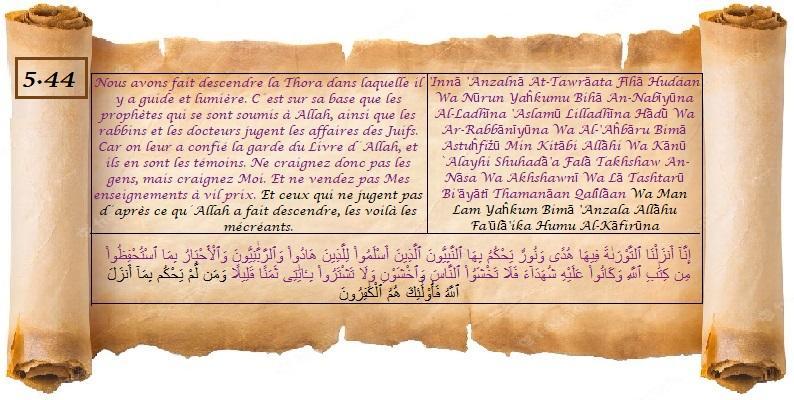 5.44
Nous avons fait descendre la Thora dans laquelle il
y a guide et lumière. C´est sur sa base que les
prophètes qui se sont soumis à Allah, ainsi que les
rabbins et les docteurs jugent les affaires des Juifs.
Car on leur a confié la garde du Livre d´Allah, et
ils en sont les témoins. Ne craignez donc pas les
gens, mais craignez Moi. Et ne vendez pas Mes
enseignements à vil prix. Et ceux qui ne jugent pas
d´après ce qu´Allah a fait descendre, les voilà les
mécréants.
'Innā 'Anzalnā At-Tawrāata Fīhā Hudáan
Wa Nūrun Yaĥkumu Bihā An-Nabīyūna
Al-Ladhīna 'Aslamū Lilladhīna Hādū Wa
Ar-Rabbānīyūna Wa Al-'Aĥbāru Bimā
Astuĥfižū Min Kitābi Allāhi Wa Kānū
`Alayhi Shuhadā'a Falā Takhshaw An-
Nāsa Wa Akhshawnī Wa Lā Tashtarū
Bi'āyātī Thamanāan Qalīlāan Wa Man
Lam Yaĥkum Bimā 'Anzala Allāhu
Fa'ūlā'ika Humu Al-Kāfirūna
إِنَّآ أَنزَلْنَا ٱلتَّوْرَىٰةَ فِيهَا هُدًى وَنُورٌ يَحْكُمُ بِهَا ٱلنَّبِيُّونَ ٱلَّذِينَ أَسْلَمُوا۟ لِلَّذِينَ هَادُوا۟ وَٱلرَّبَّٰنِيُّونَ وَٱلْأَحْبَارُ بِمَا ٱسْتُحْفِظُوا۟
مِن كِتَٰبِ ٱللَّهِ وَكَانُوا۟ عَلَيْهِ شُهَدَآءَ فَلَا تَخْشَوُا۟ ٱلنَّاسَ وَٱخْشَوْنِ وَلَا تَشْتَرُوا۟ بِـَٔايَٰتِى ثَمَنًا قَلِيلًا وَمَن لَّمْ يَحْكُم بِمَآ أَنزَلَ
ٱللَّهُ فَأُو۟لَٰٓئِكَ هُمُ ٱلْكَٰفِرُونَ